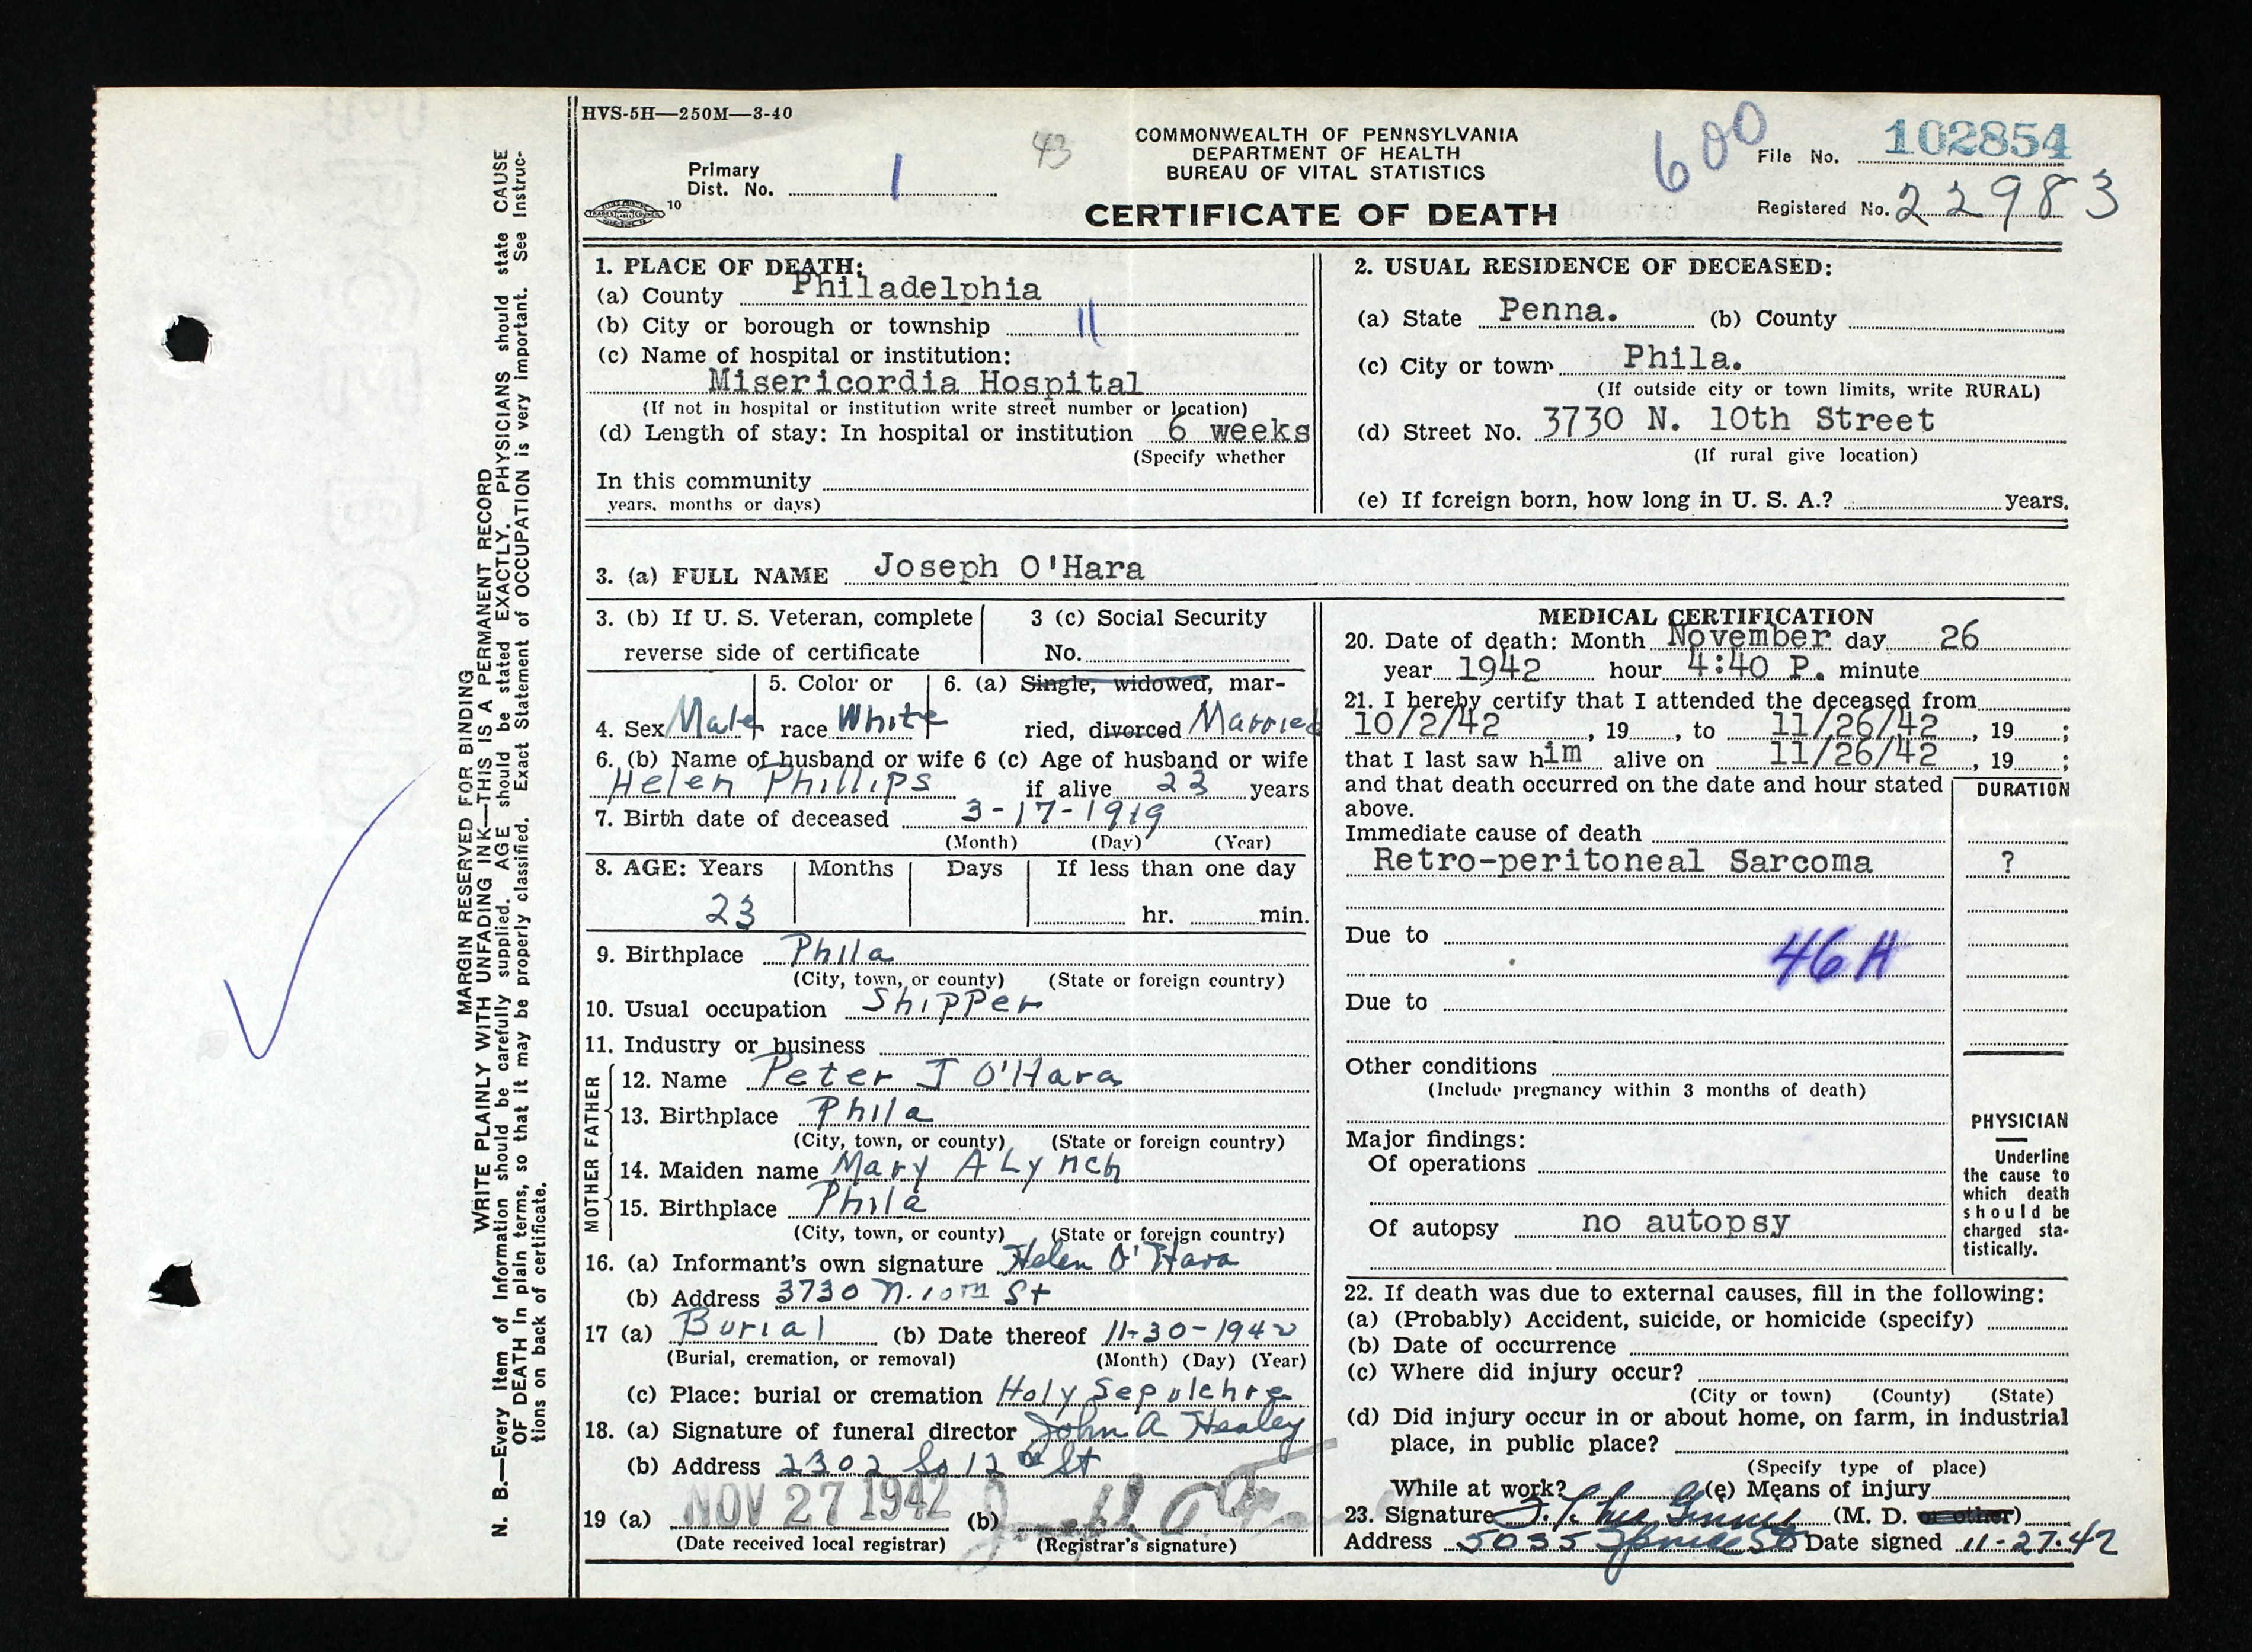 HVS-5H—250M—3-40
43
COMMONWEALTH OF PENNSYLVANIA
DEPARTMENT OF HEALTH
BUREAU OF VITAL STATISTICS
CERTIFICATE OF DEATH
600
File No. 102854
Registered No. 22983
Primary
Dist. No. 1
10
MARGIN RESERVED FOR BINDING
WRITE PLAINLY WITH UNFADING INK—THIS IS A PERMANENT RECORD
N. B.—Every item of information should be carefully supplied. AGE should be stated EXACTLY. PHYSICIANS should state CAUSE
OF DEATH in plain terms, so that it may be properly classified. Exact Statement of OCCUPATION is very important. See Instruc-
tions on back of certificate.
1. PLACE OF DEATH:
(a) County Philadelphia
(b) City or borough or township 11
(c) Name of hospital or institution:
Misericordia Hospital
(If not in hospital or institution write street number or location)
(d) Length of stay: In hospital or institution 6 weeks
(Specify whether
In this community
years, months or days)
2. USUAL RESIDENCE OF DECEASED:
(a) State Penna. (b) County
(c) City or town Phila.
(If outside city or town limits, write RURAL)
(d) Street No. 3730 N. 10th Street
(If rural give location)
(e) If foreign born, how long in U. S. A.? years.
3. (a) FULL NAME Joseph O'Hara
3. (b) If U. S. Veteran, complete
reverse side of certificate
3 (c) Social Security
No.
4. Sex Male
5. Color or
race White
6. (a) Single, widowed, mar-
ried, divorced Married
6. (b) Name of husband or wife 6 (c) Age of husband or wife
Helen Phillips if alive 23 years
7. Birth date of deceased 3-17-1919
(Month) (Day) (Year)
8. AGE: Years Months Days If less than one day
23 hr. min.
9. Birthplace Phila
(City, town, or county) (State or foreign country)
10. Usual occupation Shipper
11. Industry or business
FATHER
12. Name Peter J O'Hara
13. Birthplace Phila
(City, town, or county) (State or foreign country)
MOTHER
14. Maiden name Mary A Lynch
15. Birthplace Phila
(City, town, or county) (State or foreign country)
16. (a) Informant's own signature Helen O'Hara
(b) Address 3730 N. 10th St
17 (a) Burial (b) Date thereof 11-30-1942
(Burial, cremation, or removal) (Month) (Day) (Year)
(c) Place: burial or cremation Holy Sepulchre
18. (a) Signature of funeral director John A Healey
(b) Address 2302 So 12th St
19 (a) NOV 27 1942 (b) Joseph
(Date received local registrar) (Registrar's signature)
MEDICAL CERTIFICATION
20. Date of death: Month November day 26
year 1942 hour 4:40 P. minute
21. I hereby certify that I attended the deceased from
10/2/42, 19 , to 11/26/42, 19 ;
that I last saw him alive on 11/26/42, 19 ;
and that death occurred on the date and hour stated
above.
DURATION
Immediate cause of death
Retro-peritoneal Sarcoma ?
Due to
46 H
Due to
Other conditions
(Include pregnancy within 3 months of death)
Major findings:
Of operations
Of autopsy no autopsy
PHYSICIAN
Underline
the cause to
which death
should be
charged sta-
tistically.
22. If death was due to external causes, fill in the following:
(a) (Probably) Accident, suicide, or homicide (specify)
(b) Date of occurrence
(c) Where did injury occur?
(City or town) (County) (State)
(d) Did injury occur in or about home, on farm, in industrial
place, in public place?
(Specify type of place)
While at work? (e) Means of injury
23. Signature (M. D. or other)
Address 5035 Spruce St Date signed 11-27-42